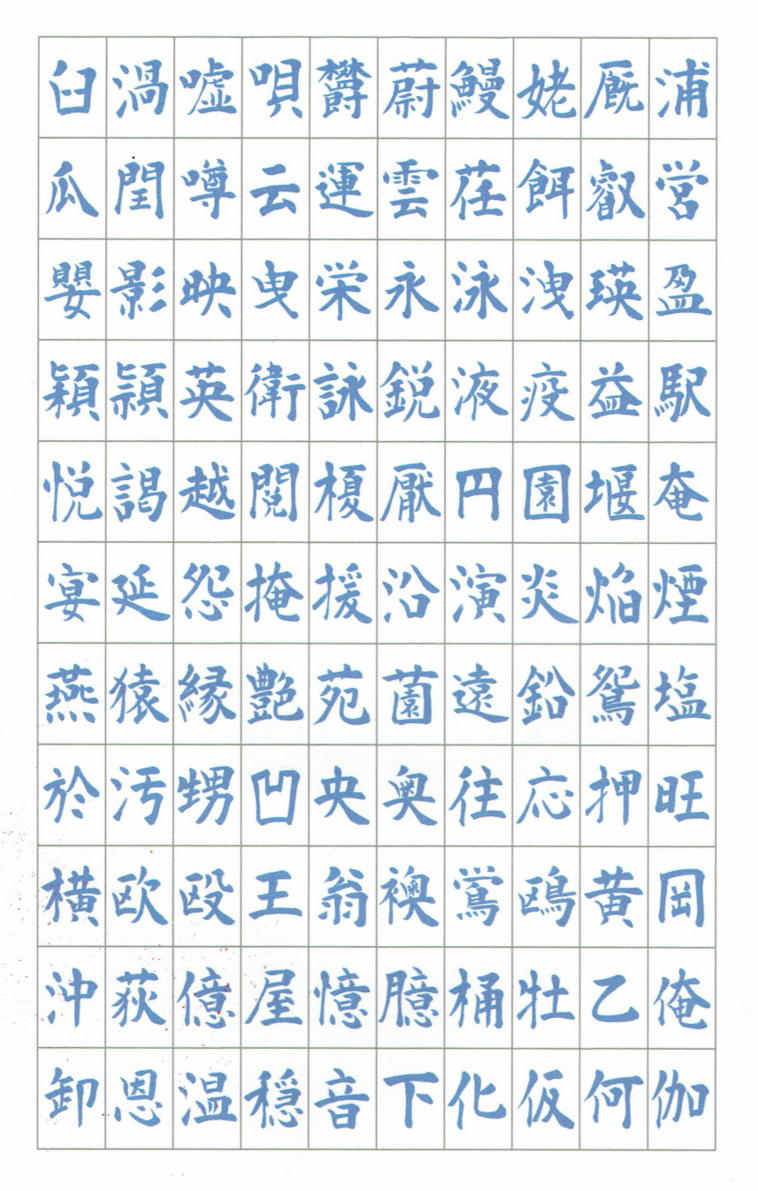 臼渦嘘唄欝蔚鰻姥厩浦
瓜閏噂云運雲荏餌叡営
嬰影映曳栄永泳洩瑛盈
穎頴英衛詠鋭液疫益駅
悦謁越閲榎厭円園堰奄
宴延怨掩援沿演炎焔煙
燕猿縁艶苑薗遠鉛鴛塩
於汚甥凹央奥往応押旺
横欧殴王翁襖鴬鴎黄岡
沖荻億屋憶臆桶牡乙俺
卸恩温穏音下化仮何伽